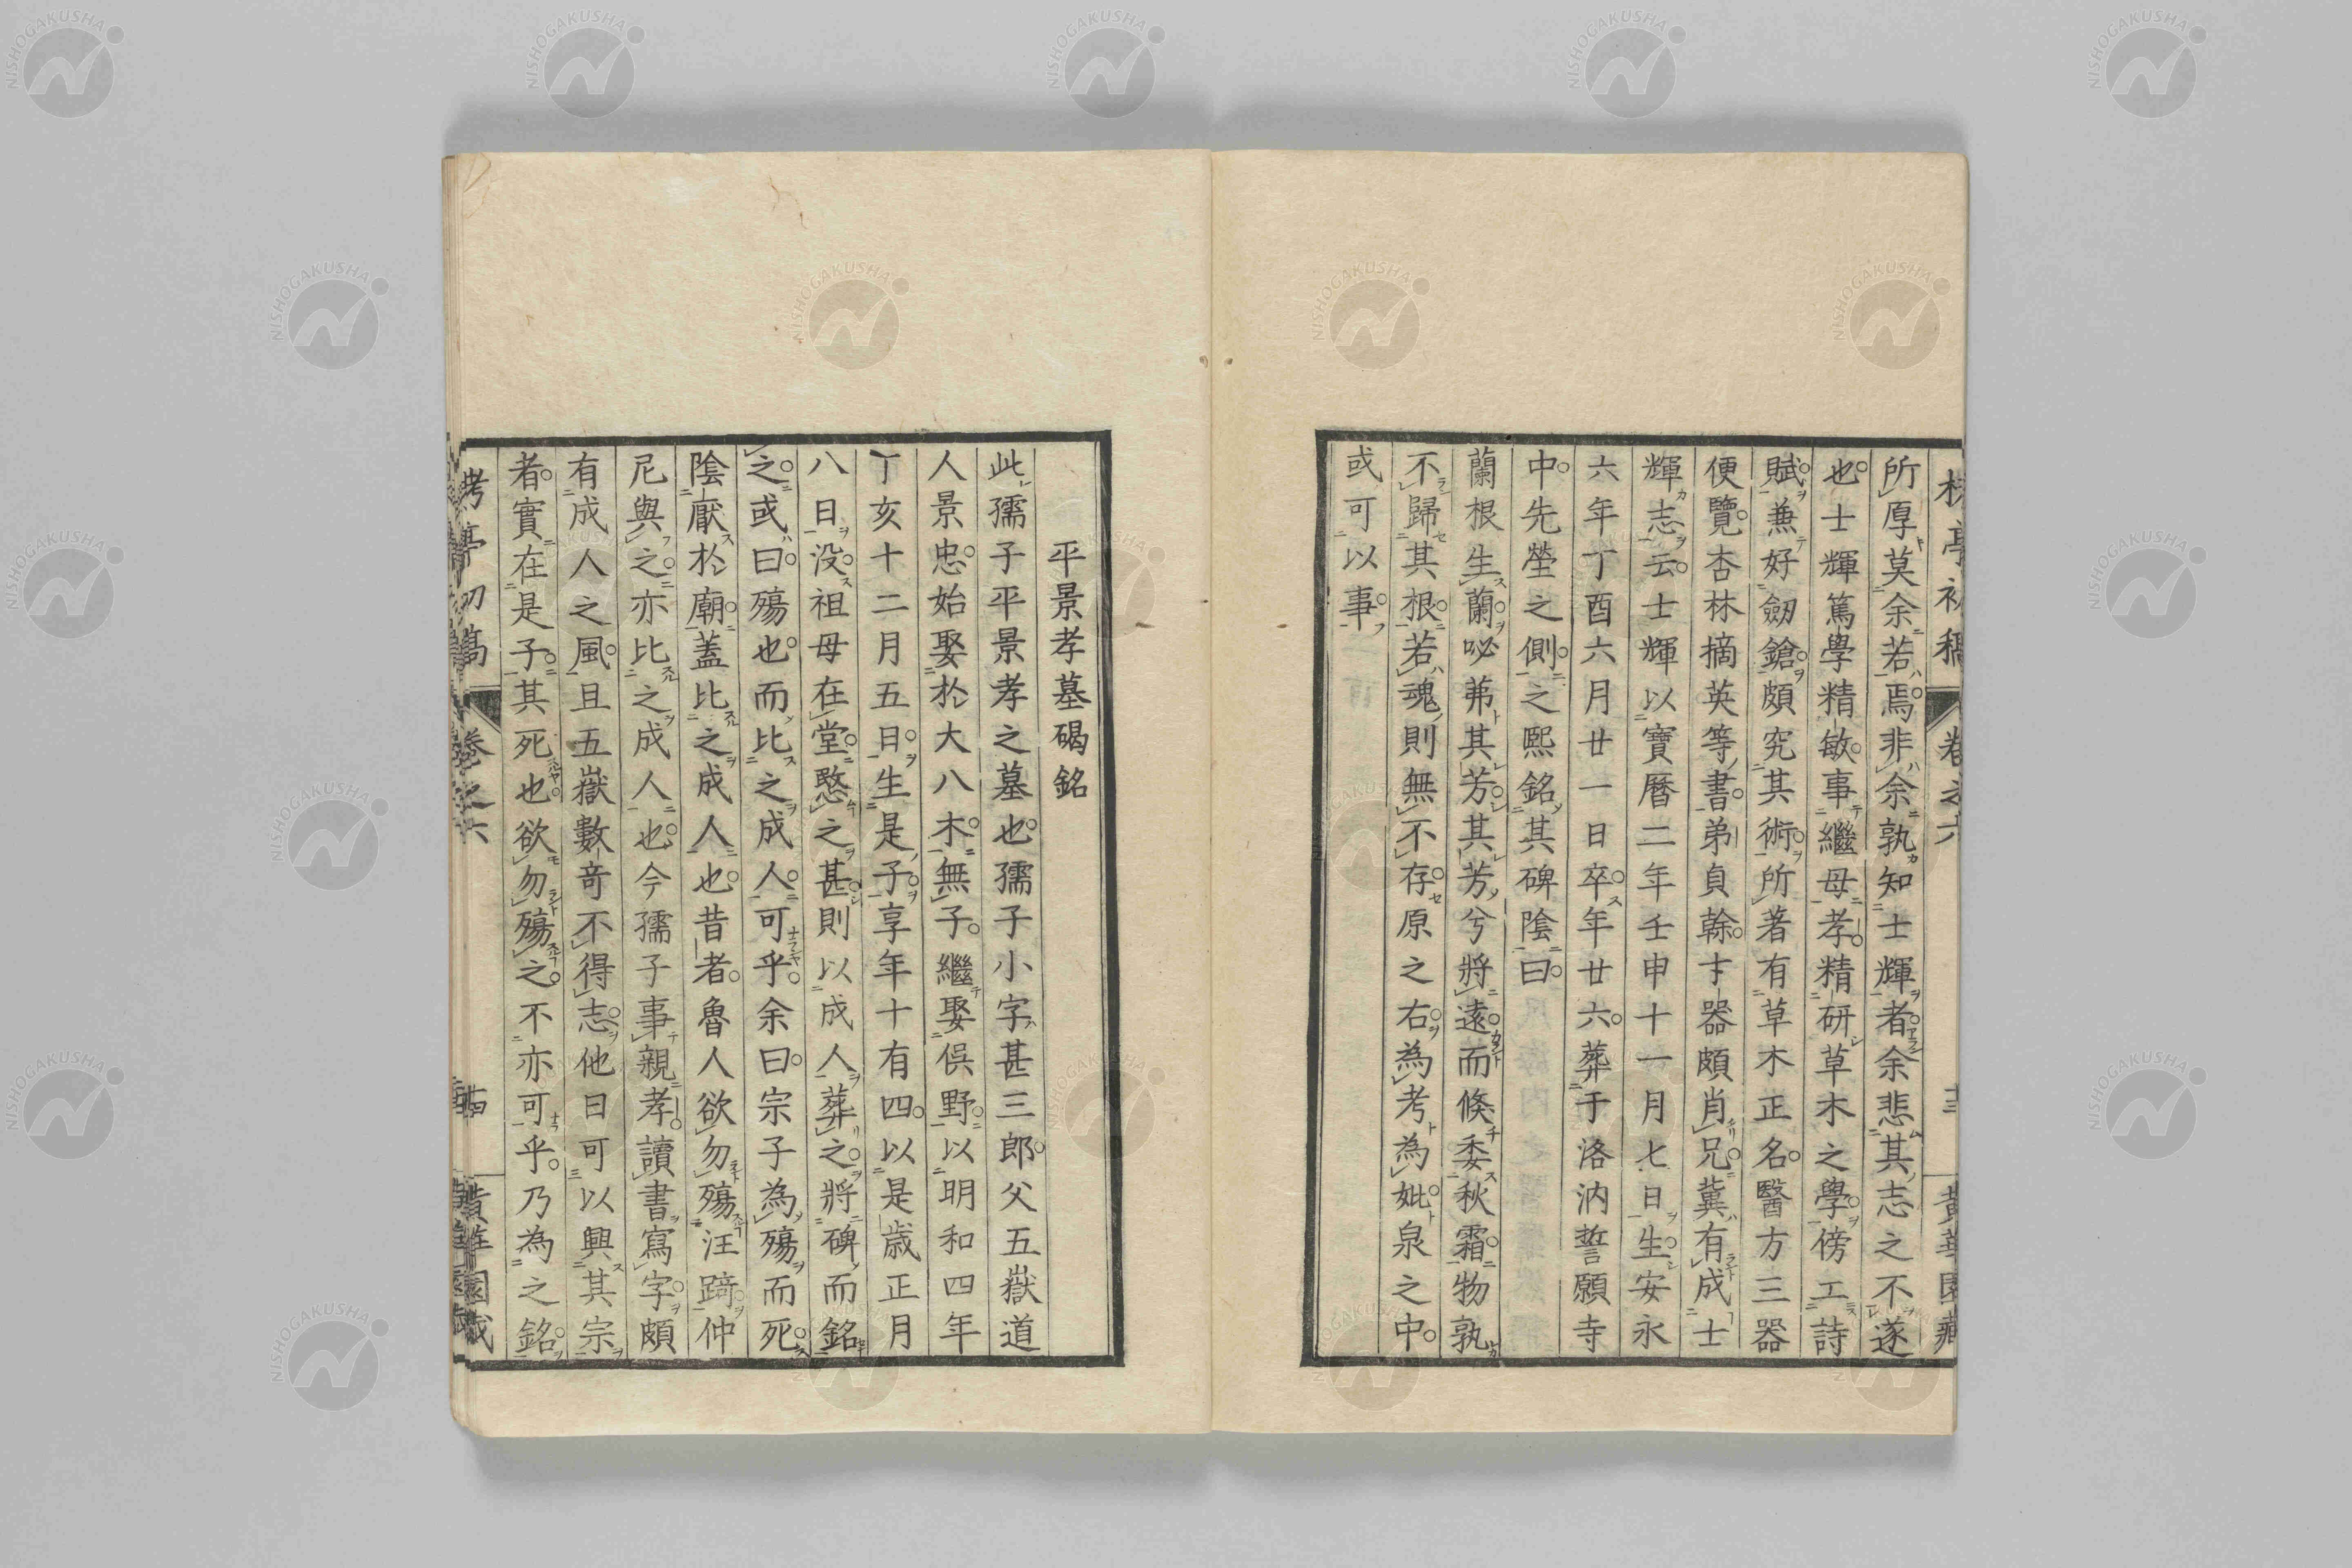 所厚莫余若焉非余孰知士輝者余悲其志之不遂
也士輝篤學精敏事繼母孝精研草木之學傍工詩
賦兼好劒鎗頗究其術所著有草木正名醫方三器
便覽杏林摘英等書弟貞幹才器頗肖兄冀有成士
輝志云士輝以寶曆二年壬申十一月七日生安永
六年丁酉六月廿一日卒年廿六葬于洛汭誓願寺
中先塋之側之熙銘其碑陰曰
蘭根生蘭咇茀其芳其芳兮將遠而倏委秋霜物孰
不歸其根若魂則無不存原之右為考為妣泉之中
或可以事
卷之六
十三
平景孝墓碣銘
此孺子平景孝之墓也孺子小字甚三郎父五嶽道
人景忠始娶於大八木無子繼娶俣野以明和四年
丁亥十二月五日生是子享年十有四以是歲正月
八日没祖母在堂愍之甚則以成人葬之將碑而銘
之或曰殤也而比之成人可乎余曰宗子為殤而死
陰厭於廟蓋比之成人也昔者魯人欲勿殤汪踦仲
尼與之亦比之成人也今孺子事親孝讀書寫字頗
有成人之風且五嶽數奇不得志他日可以興其宗
者實在是子其死也欲勿殤之不亦可乎乃為之銘
NISHOGAKUSHA